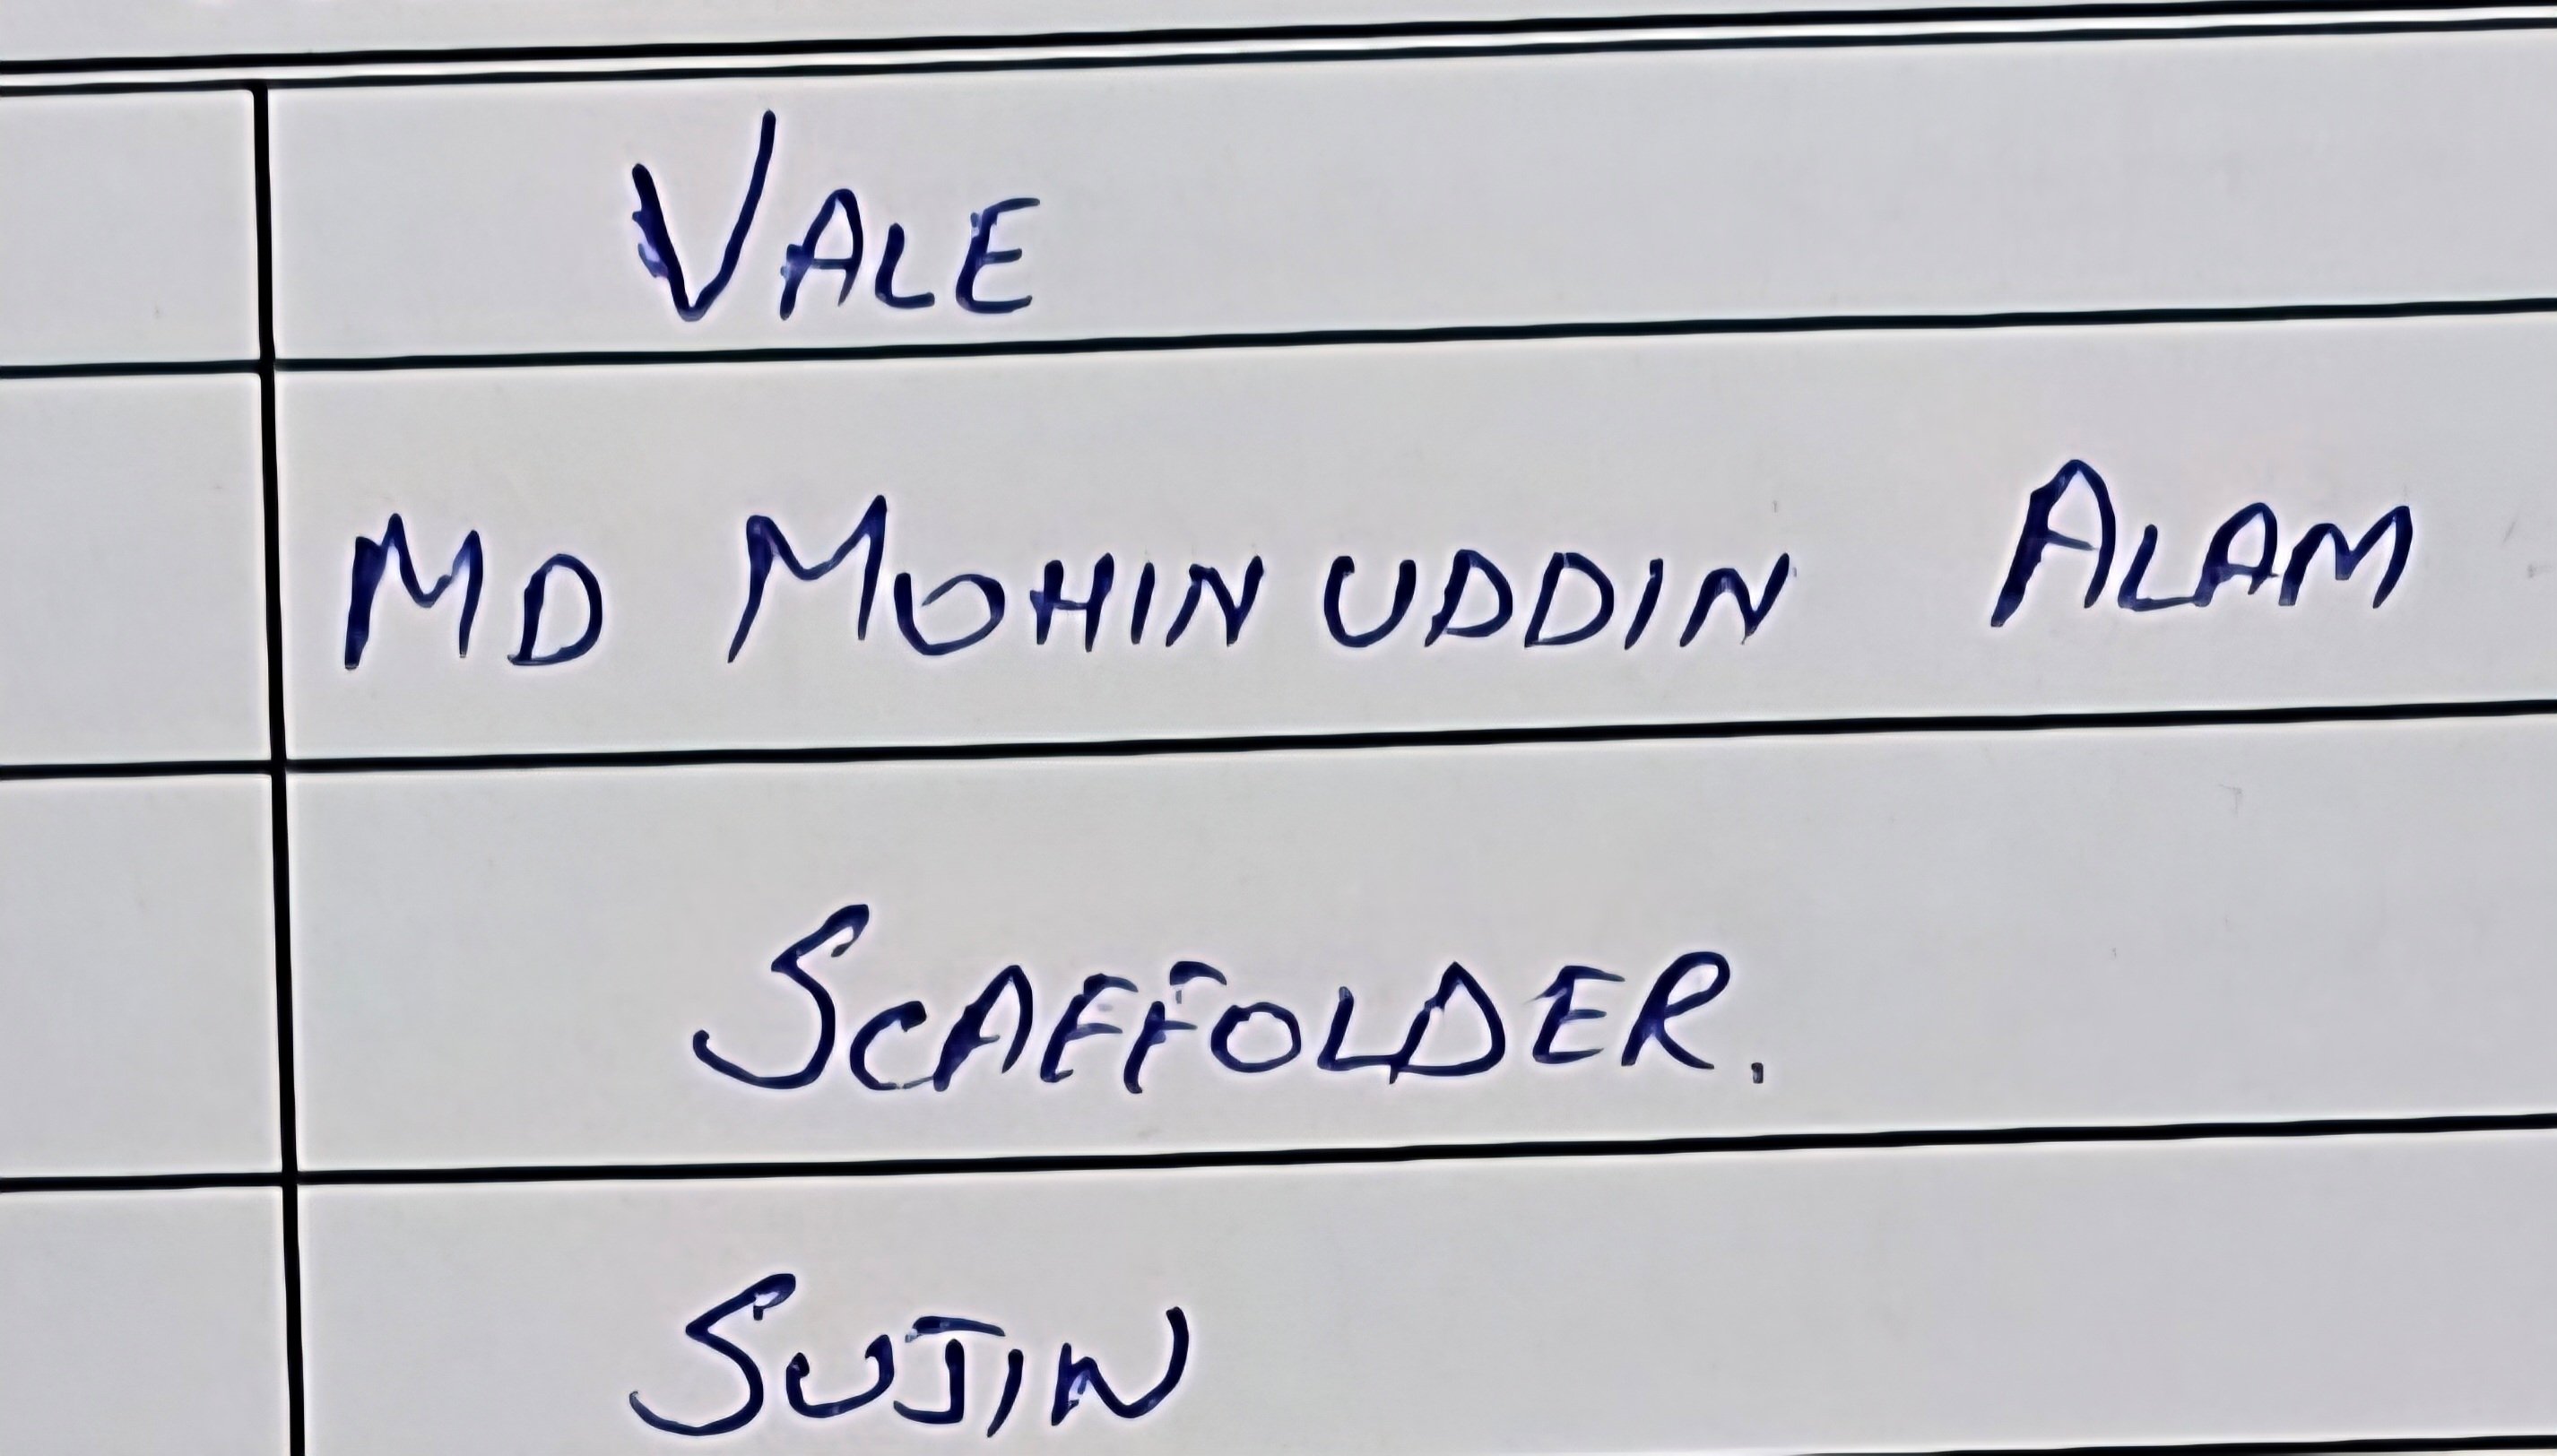 VALE
MD MOHIN UDDIN ALAM
SCAFFOLDER.
SUJIN